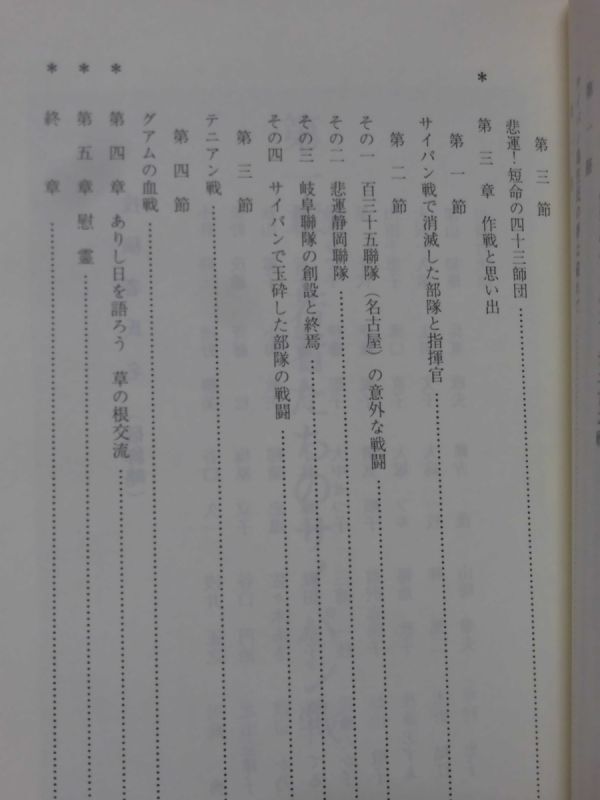 第三節
悲運！短命の四十三師団
* 第三章 作戦と思い出
第一節
サイパン戦で消滅した部隊と指揮官
第二節
その一 百三十五聯隊（名古屋）の意外な戦闘
その二 悲運静岡聯隊
その三 岐阜聯隊の創設と終焉
その四 サイパンで玉砕した部隊の戦闘
第三節
テニアン戦
第四節
グアムの血戦
* 第四章 ありし日を語ろう 草の根交流
* 第五章 慰霊
* 終章